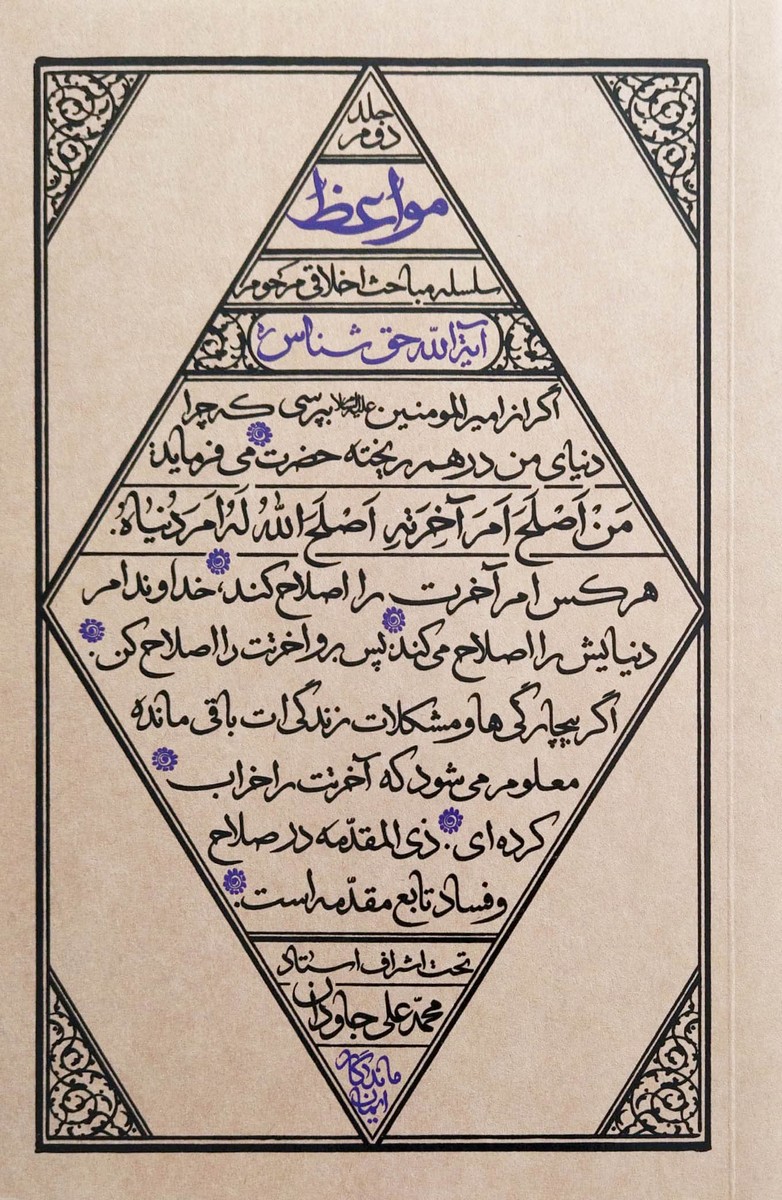 جلد
دوم
مواعظ
سلسله مباحث اخلاقی مرحوم
آیةالله حق شناس ره
اگر از امیرالمومنین علیه‌السلام بپرسی که چرا
دنیای من درهم ریخته حضرت می فرماید:
مَنْ اَصْلَحَ اَمرَ آخِرَتِهِ اَصْلَحَ اللهُ لَهُ اَمرَ دُنیاهُ.
هرکس امر آخرت را اصلاح کند، خداوند امر
دنیایش را اصلاح می‌کند. پس برو آخرتت را اصلاح کن.
اگر بیچارگی ها و مشکلات زندگی ات باقی مانده
معلوم می شود که آخرتت را خراب
کرده ای. ذی المقدّمه در صلاح
و فساد تابع مقدّمه است.
تحت اشراف استاد
محمّدعلی جاودان
ماندگار
ایمان